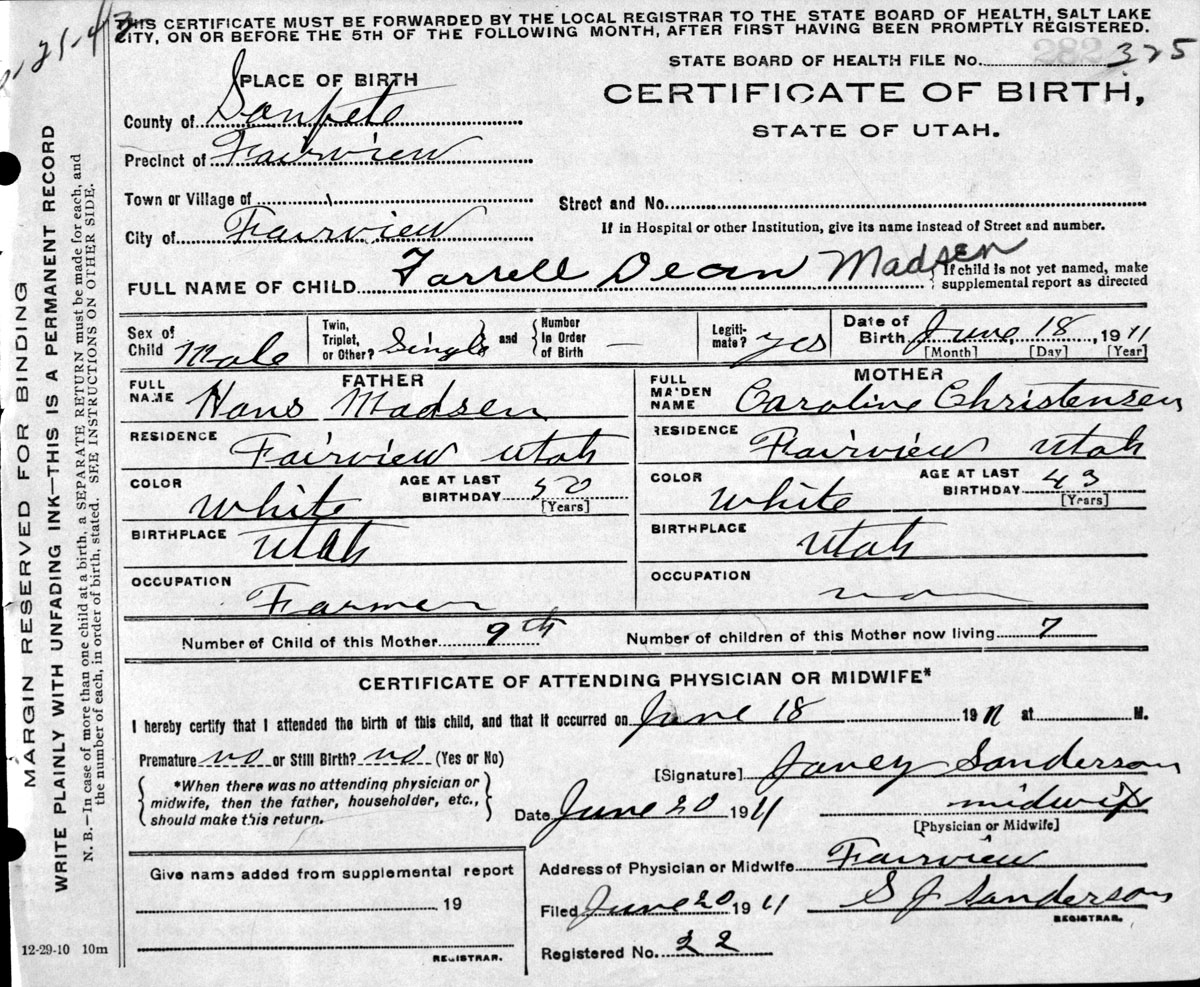 THIS CERTIFICATE MUST BE FORWARDED BY THE LOCAL REGISTRAR TO THE STATE BOARD OF HEALTH, SALT LAKE
CITY, ON OR BEFORE THE 5TH OF THE FOLLOWING MONTH, AFTER FIRST HAVING BEEN PROMPTLY REGISTERED.
STATE BOARD OF HEALTH FILE No. 282 325
PLACE OF BIRTH
CERTIFICATE OF BIRTH,
STATE OF UTAH.
County of Sanpete
Precinct of Fairview
Town or Village of
Street and No.
City of Fairview
If in Hospital or other Institution, give its name instead of Street and number.
FULL NAME OF CHILD Farrell Dean Madsen
If child is not yet named, make
supplemental report as directed
Sex of Child Male
Twin, Triplet, or Other? Single
and Number in Order of Birth —
Legitimate? Yes
Date of Birth June, 18, 1911
[Month] [Day] [Year]
FATHER
FULL NAME Hans Madsen
RESIDENCE Fairview Utah
COLOR White
AGE AT LAST BIRTHDAY 50
[Years]
BIRTHPLACE Utah
OCCUPATION Farmer
MOTHER
FULL MAIDEN NAME Caroline Christensen
RESIDENCE Fairview Utah
COLOR White
AGE AT LAST BIRTHDAY 43
[Years]
BIRTHPLACE Utah
OCCUPATION
Number of Child of this Mother 9th
Number of children of this Mother now living 7
CERTIFICATE OF ATTENDING PHYSICIAN OR MIDWIFE*
I hereby certify that I attended the birth of this child, and that it occurred on June 18 1911 at M.
Premature no or Still Birth? no (Yes or No)
*When there was no attending physician or
midwife, then the father, householder, etc.,
should make this return.
[Signature] Janey Sanderson
Date June 20 1911
midwife
[Physician or Midwife]
Give name added from supplemental report
19
REGISTRAR.
Address of Physician or Midwife Fairview
Filed June 20 1911
S J Sanderson
REGISTRAR.
Registered No. 22
12-29-10 10m
MARGIN RESERVED FOR BINDING
WRITE PLAINLY WITH UNFADING INK—THIS IS A PERMANENT RECORD
N. B.—In case of more than one child at a birth, a SEPARATE RETURN must be made for each, and
the number of each, in order of birth, stated. SEE INSTRUCTIONS ON OTHER SIDE.